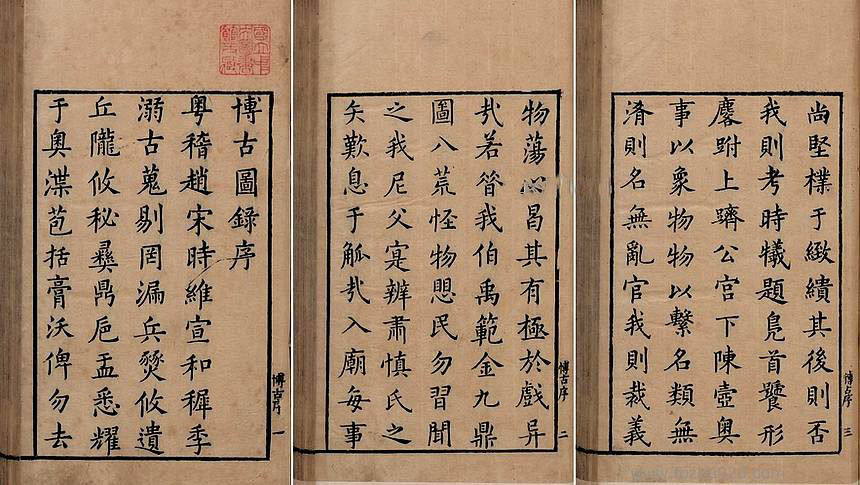 博古圖錄序
粵稽趙宋時維宣和穉季
溺古蒐剔罔漏兵燹攸遺
丘隴攸秘彞鼎卮盂悉耀
于奧渫苞括膏沃俾勿去
博古序 一
物蕩心昌其有極於戲异
㢤若昝我伯禹範金九鼎
圖八荒怪物愳民勿習聞
之我尼父寔辨肅慎氏之
矢歎息于觚㢤入廟每事
博古序 二
尚堅樸于緻繢其後則否
我則考時犧題鳧首饕形
麐跗上躋公宮下陳壼奧
事以象物物以繫名類無
淆則名無亂官我則裁義
博古序 三